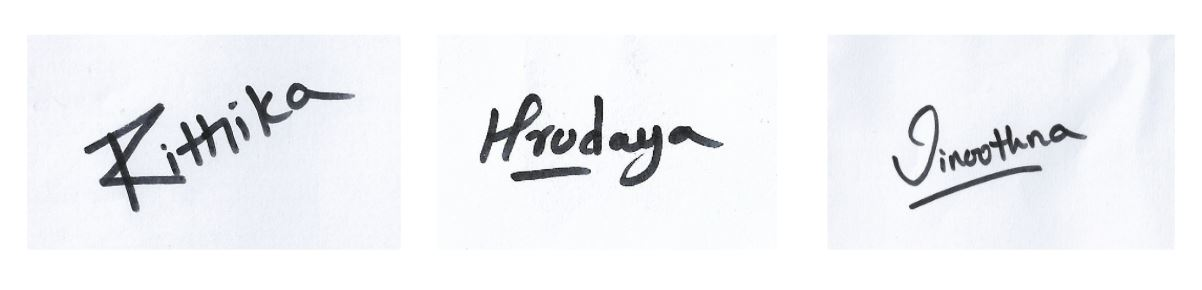 Rithika
Hrudaya
Vinoothna